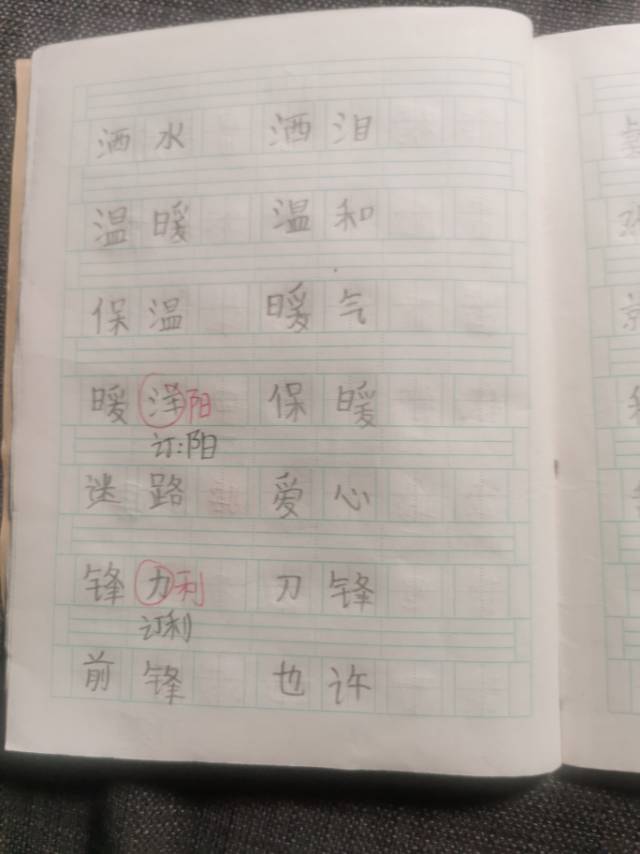 洒水 洒泪
温暖 温和
保温 暖气
暖洋阳 保暖
订:阳
迷路 爱心
锋力利 刀锋
订利
前锋 也许